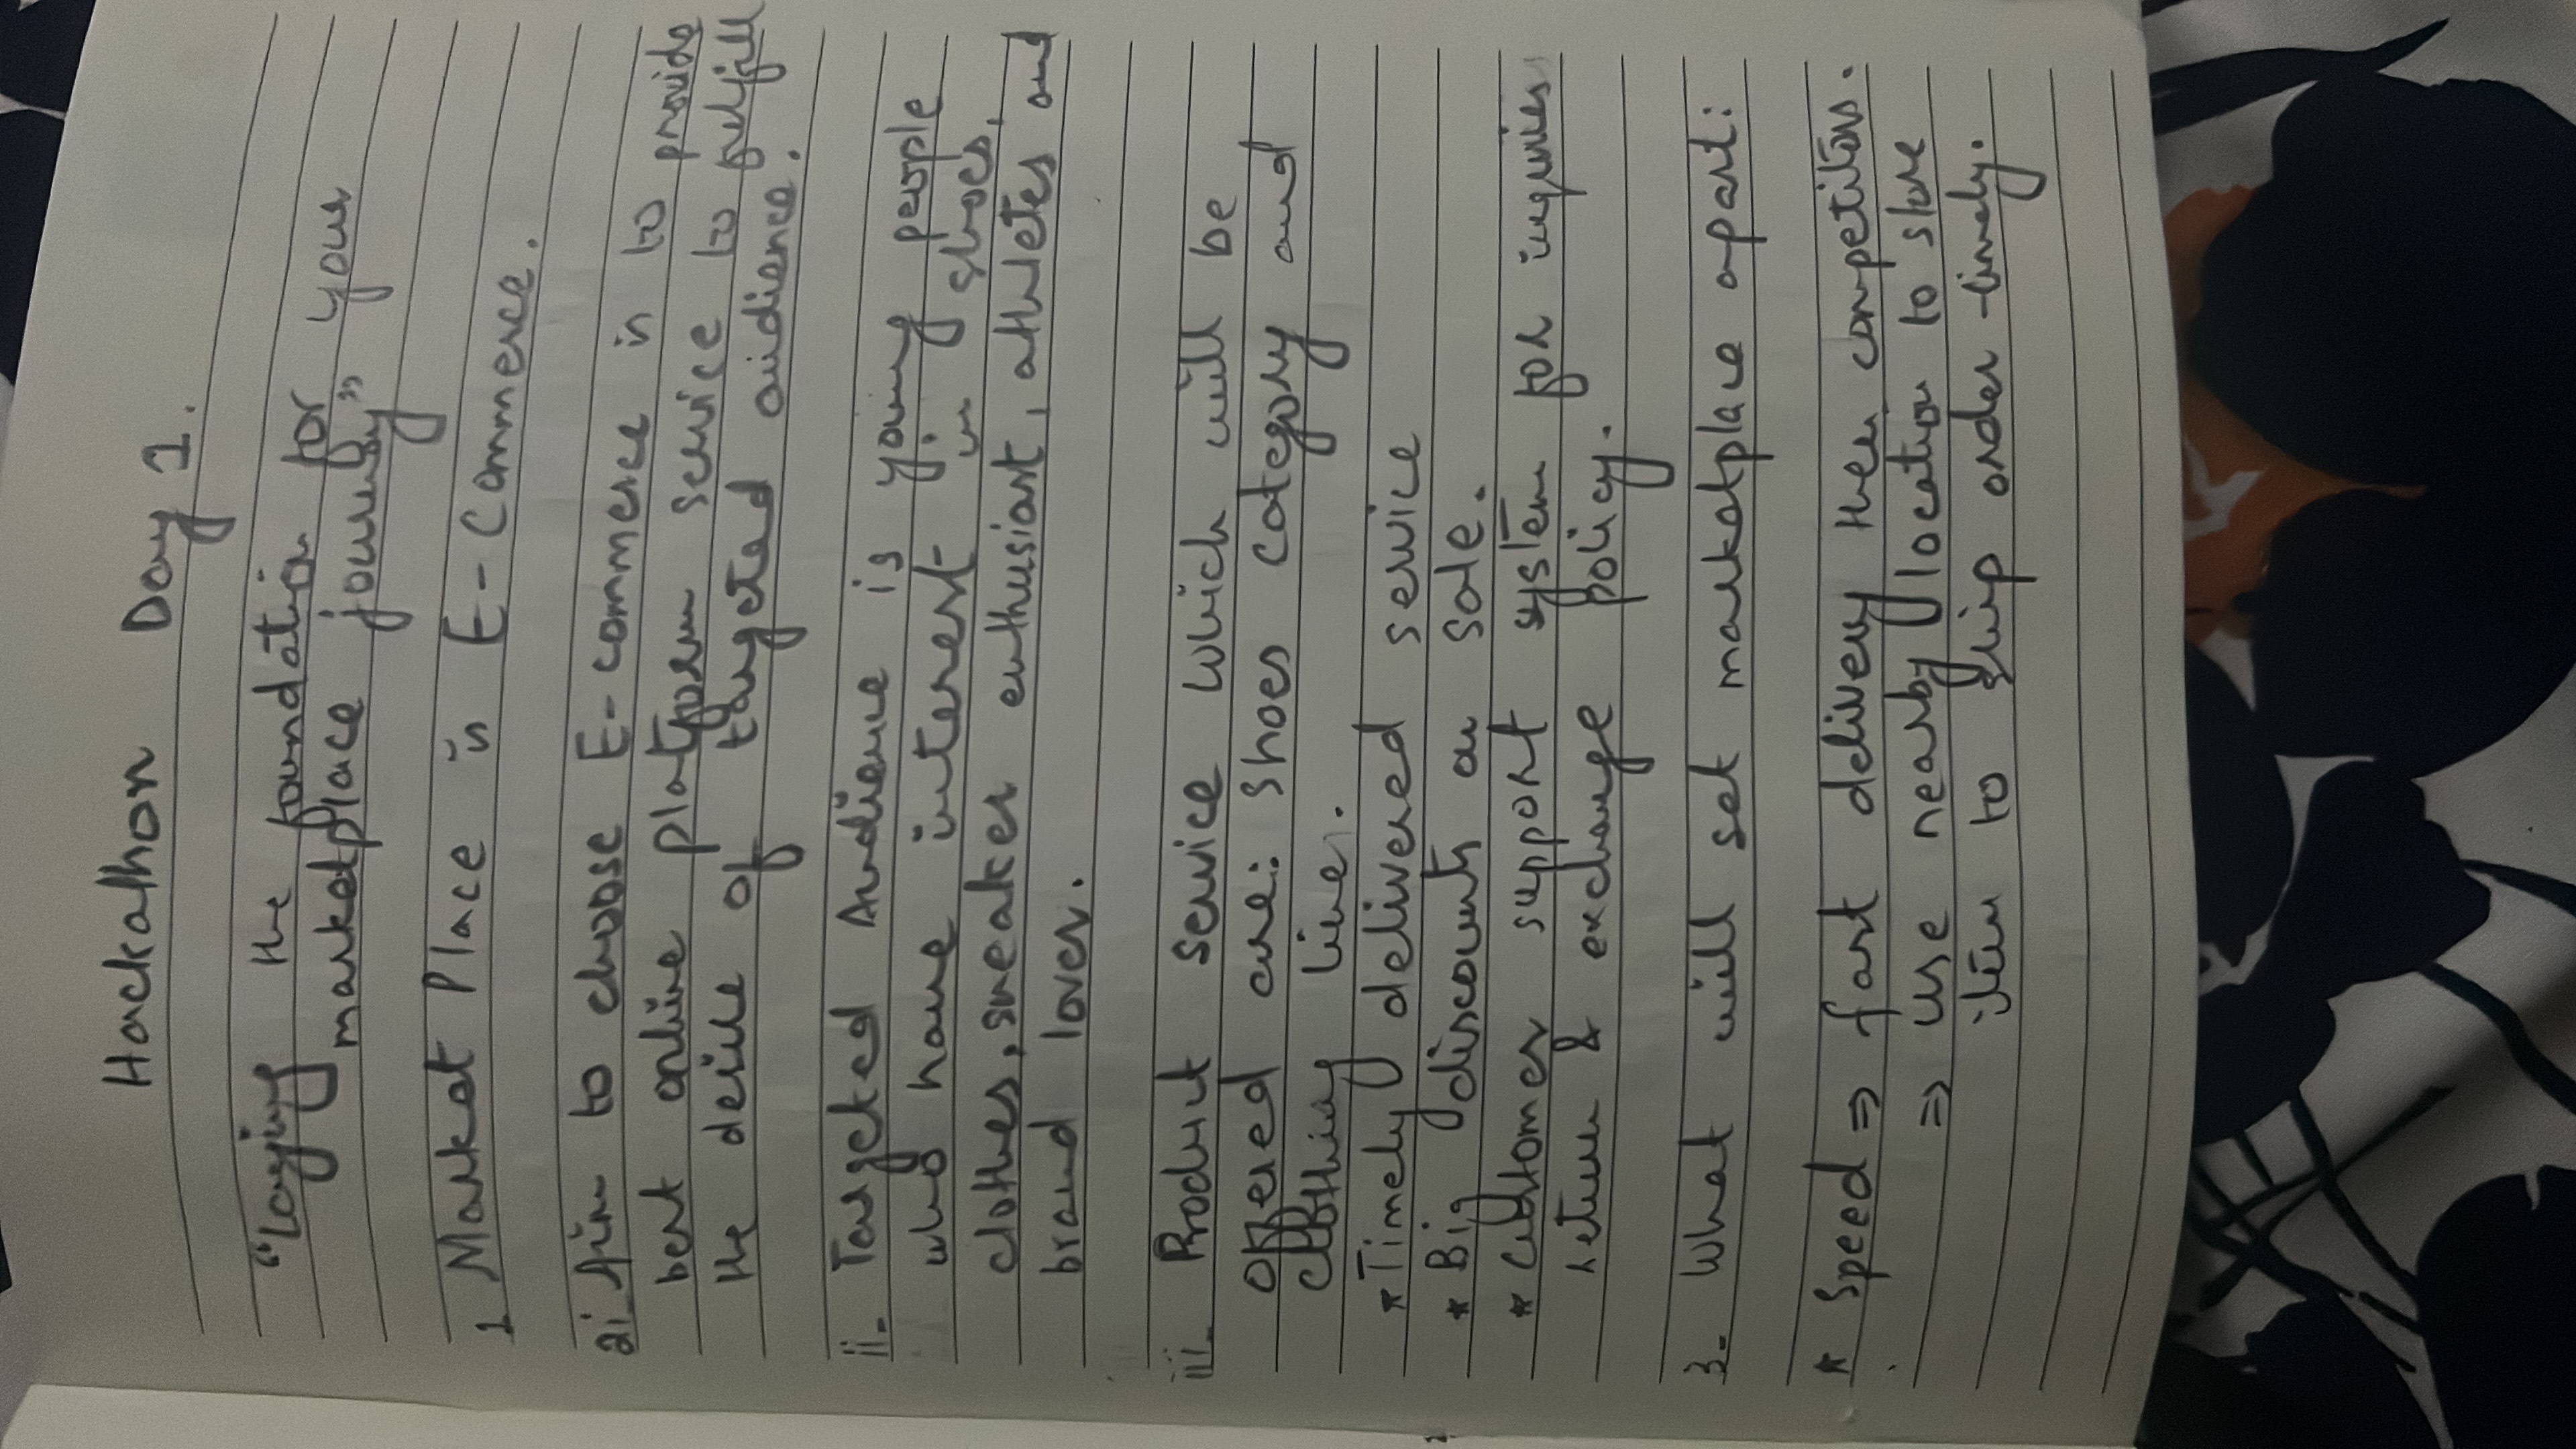 Hackathon Day 1.
"Laying the foundation for your
marketplace journey"
1 Market Place is E-Commerce.
2i Aim to choose E-commerce is to provide
best online platform service to fulfill
the desire of targeted audience.
ii. Targeted Audience is young people
who have interest in shoes,
clothes, sneaker enthusiast, athletes and
brand lover.
iii. Product service which will be
offered are: Shoes category and
Clothing line.
*Timely delivered service
* Big discounts on sale.
* Customer support system for inquries
return & exchange policy.
3. What will set marketplace apart:
* Speed ⇒ fast delivery then competitors.
⇒ use nearby location to store
item to ship order timely.